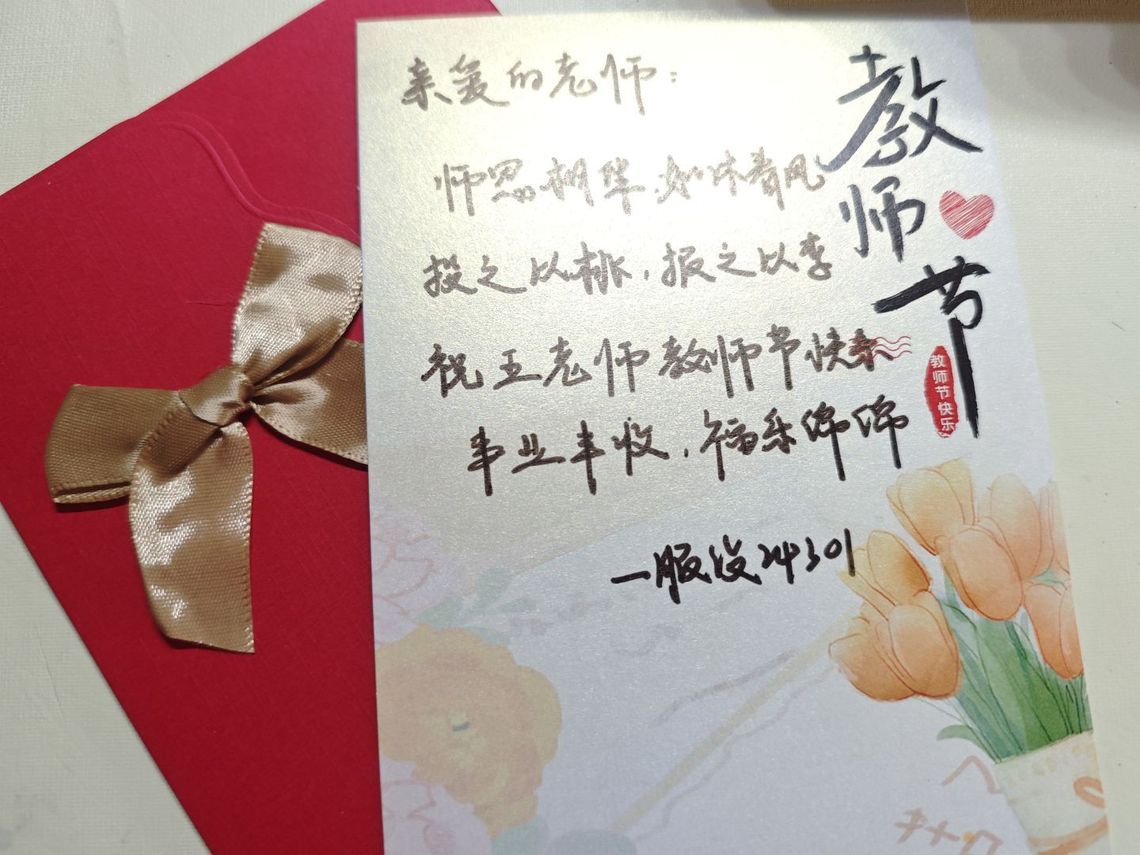 亲爱的老师：
师恩相伴，如沐春风
投之以桃，报之以李
祝王老师教师节快乐
事业丰收，福乐绵绵
—服设24301
教师节
教师节快乐